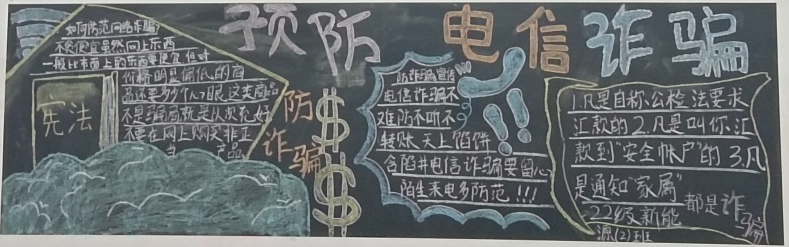 预防电信诈骗
如何防范网络诈骗?
不贪便宜虽然网上东西
一般比市面上的东西要便宜但对
价格明显偏低的商
品还要多个心眼这类商品
不是骗局就是以次充好
不要在网上购买非正
当产品
宪法
防
诈骗
$
$
防诈骗宣言
电信诈骗不
难防不听不
转账天上馅饼
含陷井电信诈骗要留心
陌生来电多防范!!!
1.凡是自称公检法要求
汇款的2.凡是叫你汇
款到"安全帐户"的3.凡
是通知"家属"都是诈骗
22级新能
源(2)班